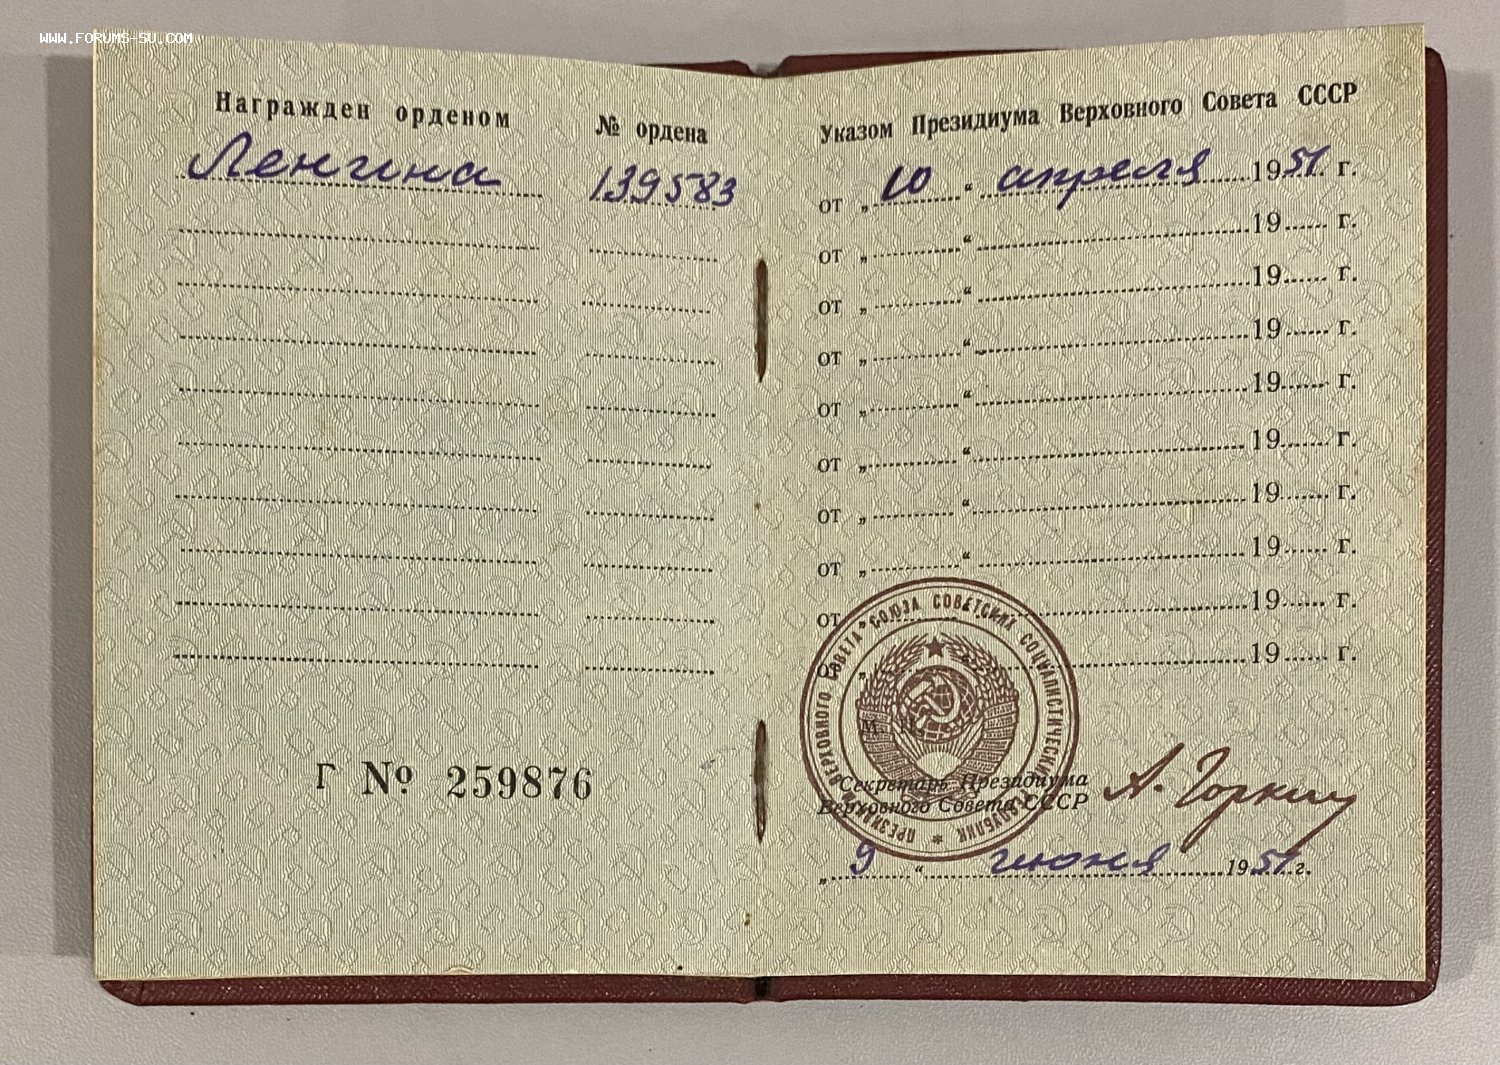 WWW.FORUMS-SU.COM
Награжден орденом № ордена
Ленина 139583
Г № 259876
Указом Президиума Верховного Совета СССР
от „10“ апреля 1951 г.
от „ “ 19 г.
от „ “ 19 г.
от „ “ 19 г.
от „ “ 19 г.
от „ “ 19 г.
от „ “ 19 г.
от „ “ 19 г.
от 19 г.
19 г.
ПРЕЗИДИУМ ВЕРХОВНОГО СОВЕТА СОЮЗА СОВЕТСКИХ СОЦИАЛИСТИЧЕСКИХ РЕСПУБЛИК
М.
Секретарь Президиума
Верховного Совета СССР
А. Горкин
„9“ июня 1951 г.